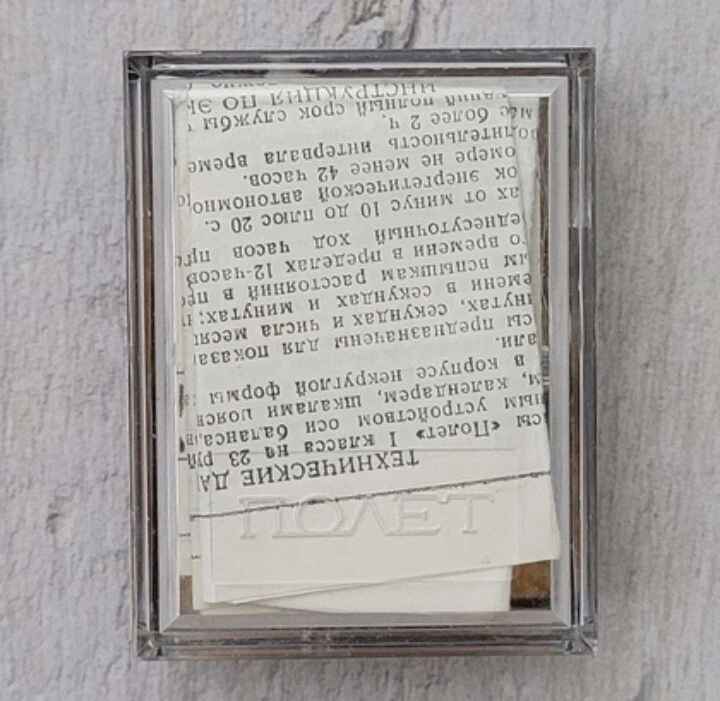 ПОЛЕТ
ТЕХНИЧЕСКИЕ ДА
сы «Полет» I класса на 23 руб
ным устройством оси баланса,
м, календарем, шкалами поясн
в корпусе некруглой формы
али.
сы предназначены для показа
инутах, секундах и числа меся
емени в секундах и минутах;
ым вспышкам расстояний в пре
го времени в пределах 12-часов
еднесуточный ход часов при
ах от минус 10 до плюс 20 с.
ок энергетической автономно
омере не менее 42 часов.
олжительность интервала време
более 2 ч.
едний полный срок службы ч
ИНСТРУКЦИЯ ПО ЭК